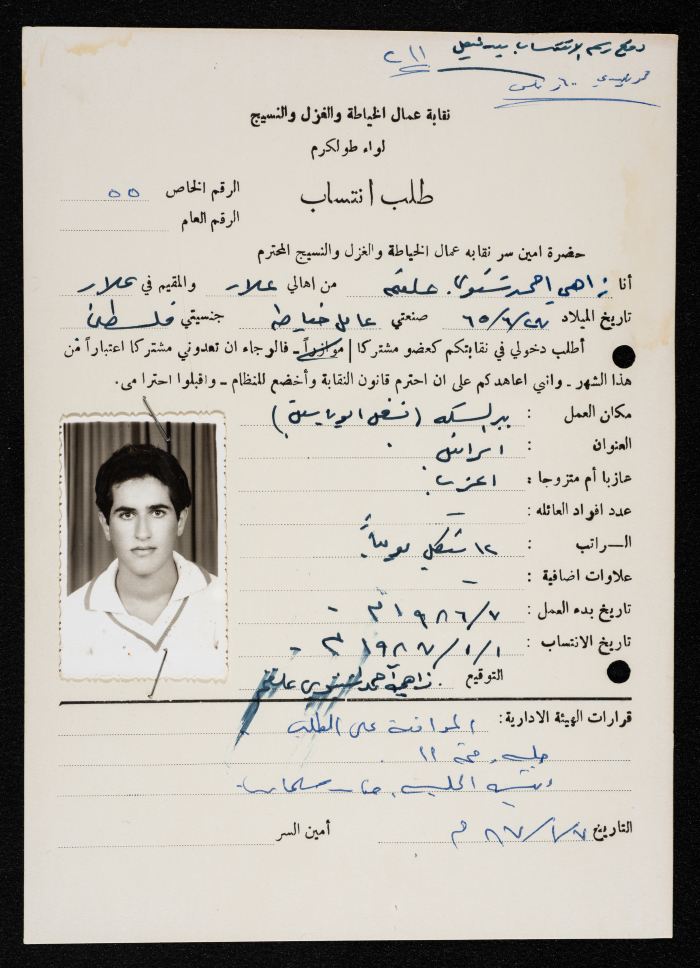 دفع رسم الانتساب
نقابة عمال الخياطة والغزل والنسيج
لواء طولكرم
طلب انتساب
الرقم الخاص ٥٥
الرقم العام
حضرة امين سر نقابه عمال الخياطة والغزل والنسيج المحترم
أنا زاهي احمد من اهالي علار والمقيم في علار
تاريخ الميلاد ٦٥/٦/ صنعتي عامل خياطه جنسيتي فلسطيني
أطلب دخولي في نقابتكم كعضو مشتركا | موازراً ـ فالرجاء ان تعدوني مشتركا اعتباراً من
هذا الشهر ـ واني اعاهدكم على ان احترم قانون النقابة وأخضع للنظام ـ واقبلوا احترامي.
مكان العمل :
العنوان : اسرائيل
عازبا أم متزوجا : اعزب
عدد افراد العائله : ـ
الـــراتب : ١٢ شيكل يومياً
علاوات اضافية : ـ
تاريخ بدء العمل : ١٩٨٦/٧م -
تاريخ الانتساب : ١٩٨٧/١/١م -
التوقيع زاهي أحمد
قرارات الهيئة الادارية: الموافقة على الطلب
جلسة رقم
التاريخ ٨٧/١/٧م أمين السر